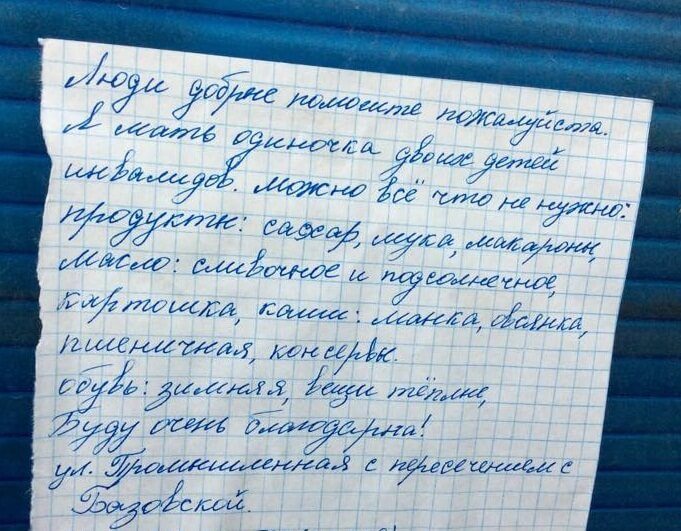 Люди добрые помогите пожалуйста.
Я мать одиночка двоих детей
инвалидов. Можно всё что не нужно:
продукты: сахар, мука, макароны,
масло: сливочное и подсолнечное,
картошка, каши: манка, овсянка,
пшеничная, консервы.
обувь: зимняя, вещи тёплые,
Буду очень благодарна!
ул. Промышленная с пересечением с
Базовской.